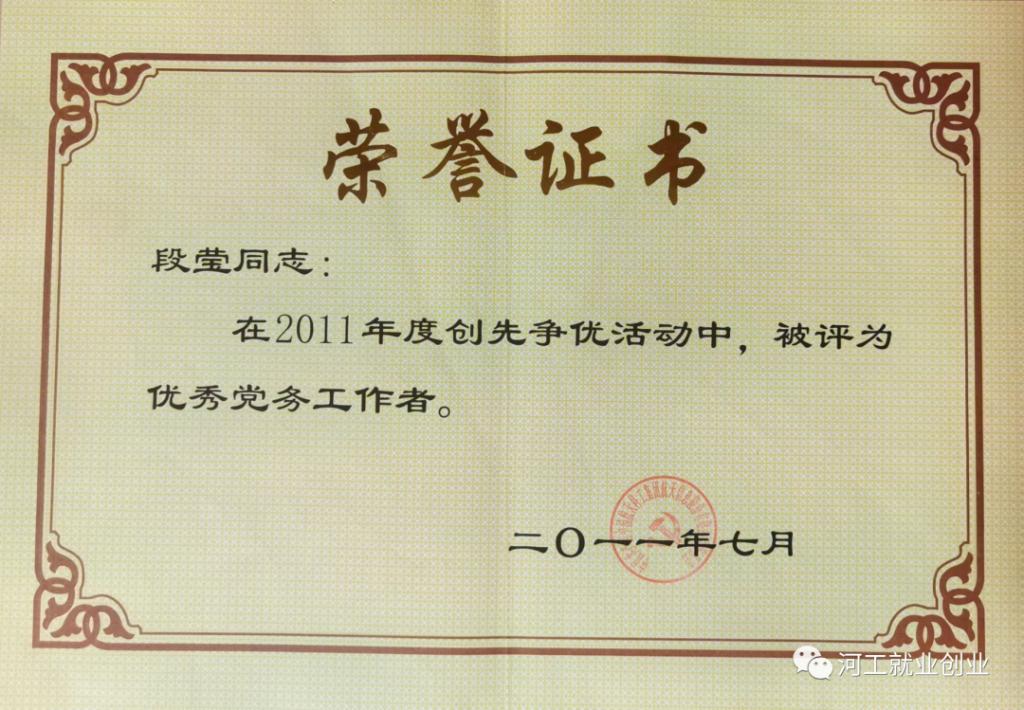 荣誉证书
段莹同志：
在2011年度创先争优活动中，被评为
优秀党务工作者。
二〇一一年七月
河工就业创业